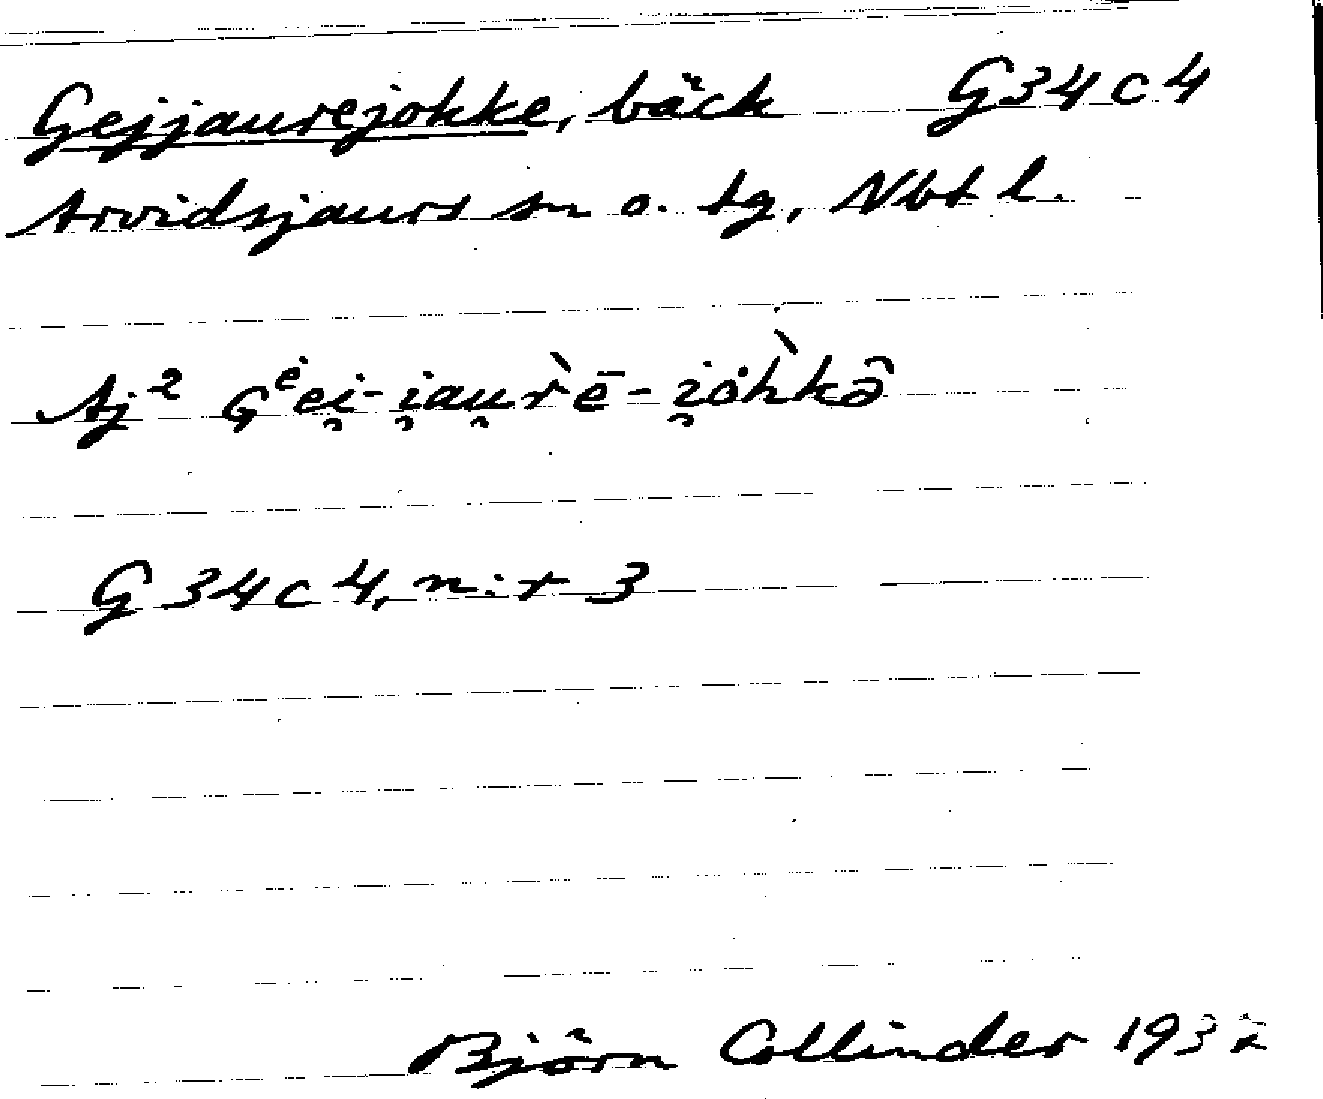 Gejjaurejokke, bäck G34c4
Arvidsjaurs sn o. tg, Nbt l.
Aj² Gᵉei̯-i̯au̯r̀ē-i̯ȯh̀kə̑
G34c4, n:r 3
Björn Collinder 1932